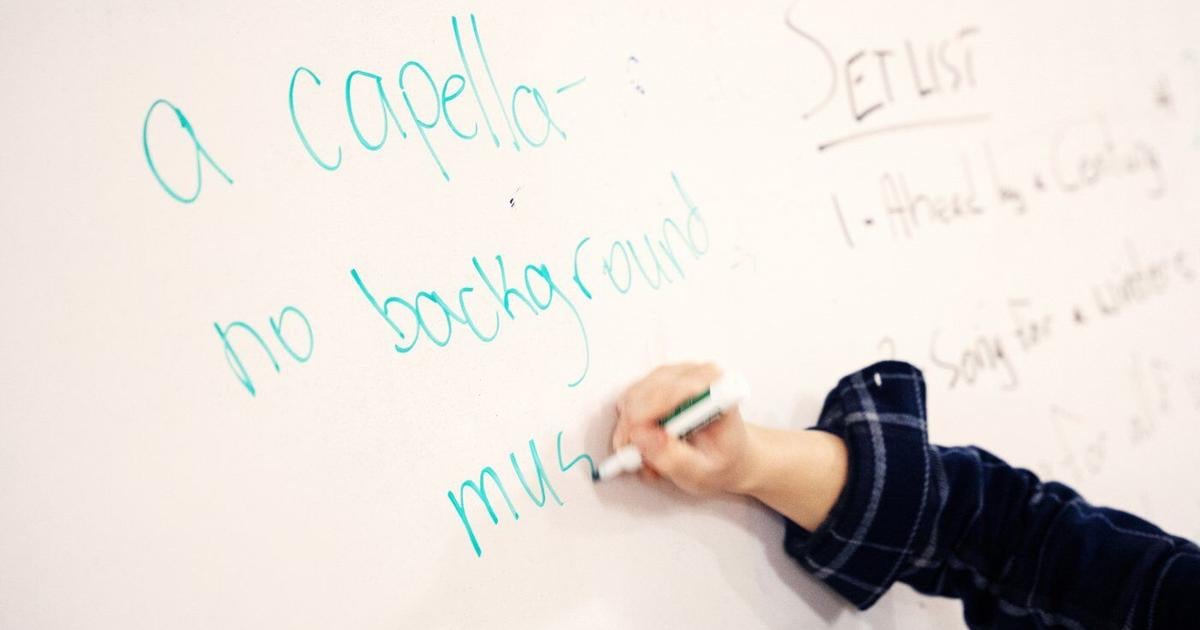 a capella-
no background
mus
SETLIST
1. Ahead by a Century
Song for a Winter's
for